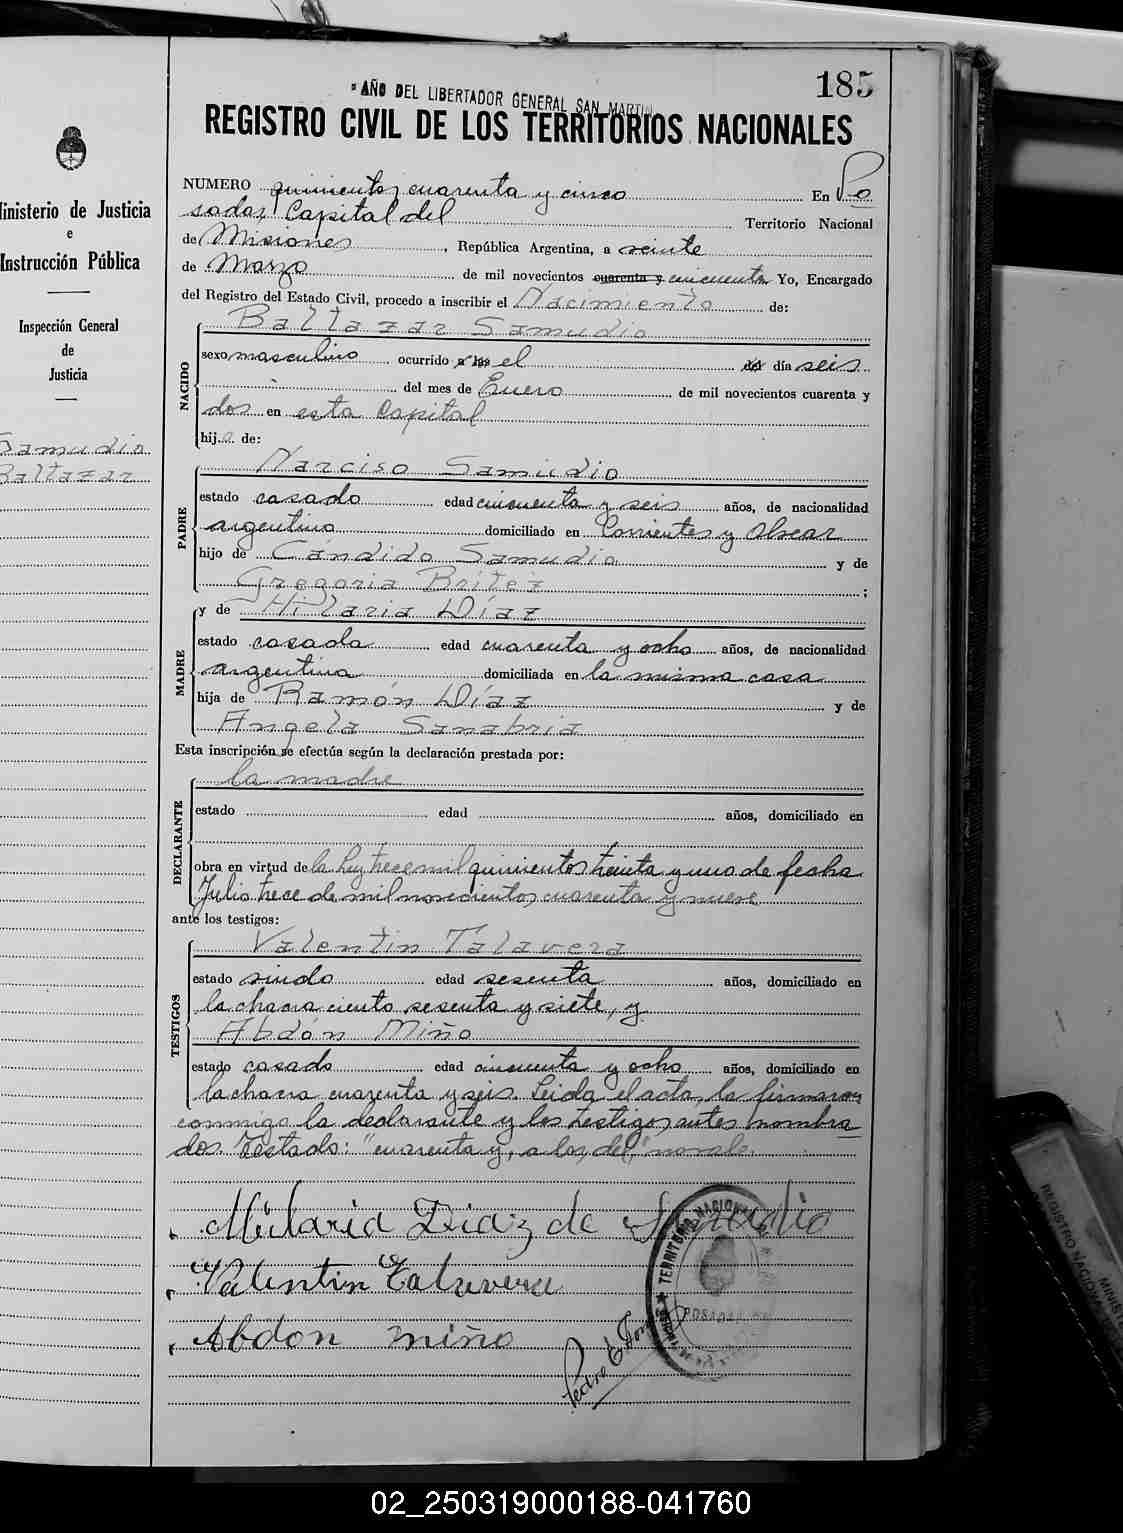 185
"AÑO DEL LIBERTADOR GENERAL SAN MARTIN
REGISTRO CIVIL DE LOS TERRITORIOS NACIONALES
Ministerio de Justicia
e
Instrucción Pública
Inspección General
de
Justicia
Samudio
Baltazar
NUMERO quinientos cuarenta y cinco En Po
sadas Capital del Territorio Nacional
de Misiones, República Argentina, a veinte
de Marzo de mil novecientos cuarenta y cincuenta Yo, Encargado
del Registro del Estado Civil, procedo a inscribir el Nacimiento de:
Baltazar Samudio
NACIDO
sexo masculino ocurrido a las el del día seis
del mes de Enero de mil novecientos cuarenta y
dos en esta Capital
hijo de:
Narciso Samudio
PADRE
estado casado edad cincuenta y seis años, de nacionalidad
argentino domiciliado en Corrientes y Alvear
hijo de Cándido Samudio y de
Gregoria Brítez;
y de Hilaria Díaz
MADRE
estado casada edad cuarenta y ocho años, de nacionalidad
argentina domiciliada en la misma casa
hija de Ramón Díaz y de
Angela Sanabria
Esta inscripción se efectúa según la declaración prestada por:
la madre
DECLARANTE
estado edad años, domiciliado en
obra en virtud de la Ley trece mil quinientos treinta y uno de fecha
Julio trece de mil novecientos cuarenta y nueve
ante los testigos:
Valentin Talavera
TESTIGOS
estado viudo edad sesenta años, domiciliado en
la chacra ciento sesenta y siete, y
Abdón Miño
estado casado edad cincuenta y ocho años, domiciliado en
la chacra cuarenta y seis. Leida el acta, la firmaron
conmigo la declarante y los testigos antes nombra
dos. Testado: "cuarenta y, a las, del," no vale.
Hilaria Diaz de Samudio
Valentin Talavera
Abdon miño
Pedro E.
TERRITORIO NACIONAL
POSADAS
REGISTRO NACIONAL
02_250319000188-041760